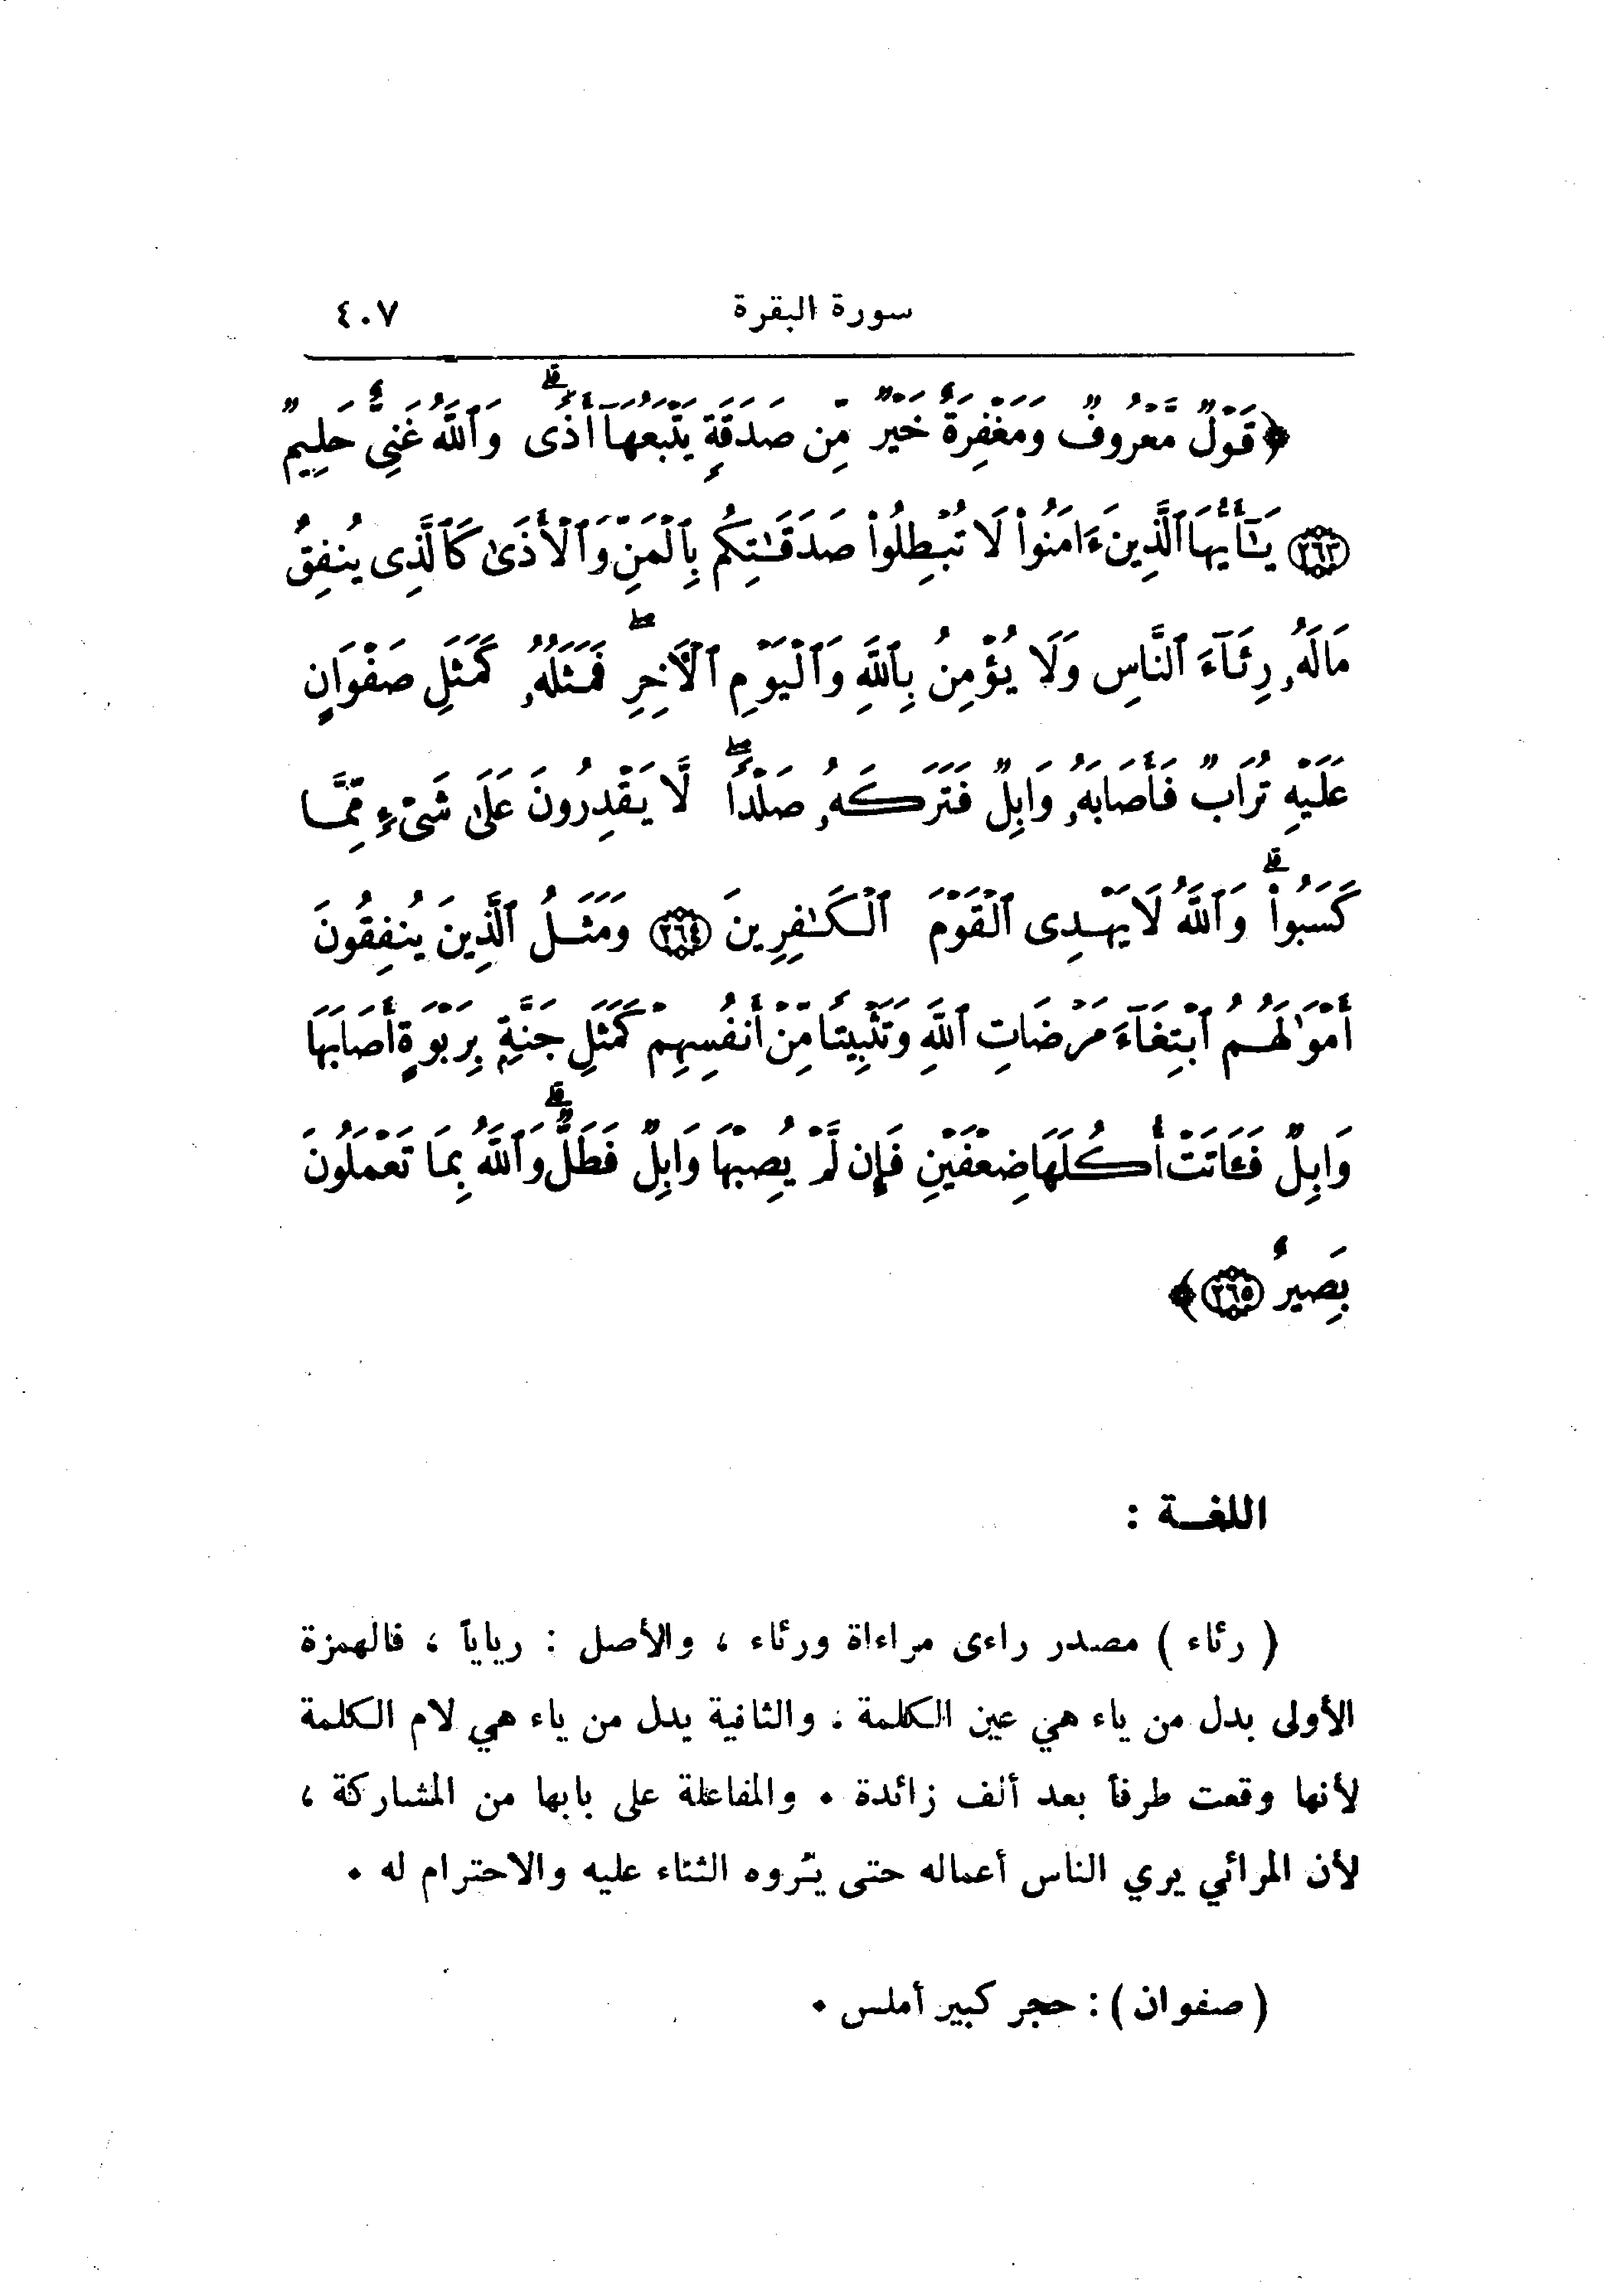 سورة البقرة ٤٠٧
﴿ قَوْلٌ مَّعْرُوفٌ وَمَغْفِرَةٌ خَيْرٌ مِّن صَدَقَةٍ يَتْبَعُهَآ أَذًى ۗ وَٱللَّهُ غَنِىٌّ حَلِيمٌ
٢٦٣ يَٰٓأَيُّهَا ٱلَّذِينَ ءَامَنُوا۟ لَا تُبْطِلُوا۟ صَدَقَٰتِكُم بِٱلْمَنِّ وَٱلْأَذَىٰ كَٱلَّذِى يُنفِقُ
مَالَهُۥ رِئَآءَ ٱلنَّاسِ وَلَا يُؤْمِنُ بِٱللَّهِ وَٱلْيَوْمِ ٱلْأَخِرِ ۖ فَمَثَلُهُۥ كَمَثَلِ صَفْوَانٍ
عَلَيْهِ تُرَابٌ فَأَصَابَهُۥ وَابِلٌ فَتَرَكَهُۥ صَلْدًا ۖ لَّا يَقْدِرُونَ عَلَىٰ شَىْءٍ مِّمَّا
كَسَبُوا۟ ۗ وَٱللَّهُ لَا يَهْدِى ٱلْقَوْمَ ٱلْكَٰفِرِينَ ٢٦٤ وَمَثَلُ ٱلَّذِينَ يُنفِقُونَ
أَمْوَٰلَهُمُ ٱبْتِغَآءَ مَرْضَاتِ ٱللَّهِ وَتَثْبِيتًا مِّنْ أَنفُسِهِمْ كَمَثَلِ جَنَّةٍۭ بِرَبْوَةٍ أَصَابَهَا
وَابِلٌ فَـَٔاتَتْ أُكُلَهَا ضِعْفَيْنِ فَإِن لَّمْ يُصِبْهَا وَابِلٌ فَطَلٌّ ۗ وَٱللَّهُ بِمَا تَعْمَلُونَ
بَصِيرٌ ٢٦٥ ﴾
اللغـة :
( رئاء ) مصدر راءى مراءاة ورئاء ، والأصل : رياياً ، فالهمزة
الأولى بدل من ياء هي عين الكلمة . والثانية بدل من ياء هي لام الكلمة
لأنها وقعت طرفاً بعد ألف زائدة . والمفاعلة على بابها من المشاركة ،
لأن المرائي يري الناس أعماله حتى يُروه الثناء عليه والاحترام له .
( صفوان ) : حجر كبير أملس .